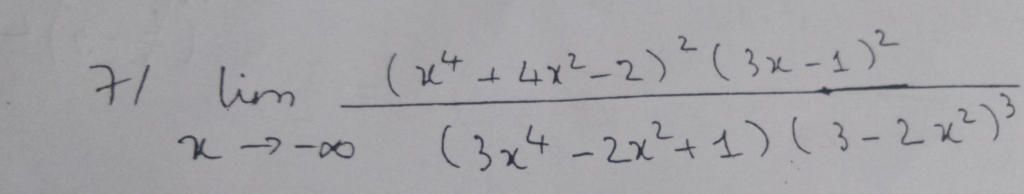 7/ lim (x⁴ + 4x² - 2)² (3x - 1)²
x → -∞ (3x⁴ - 2x² + 1) (3 - 2x²)³